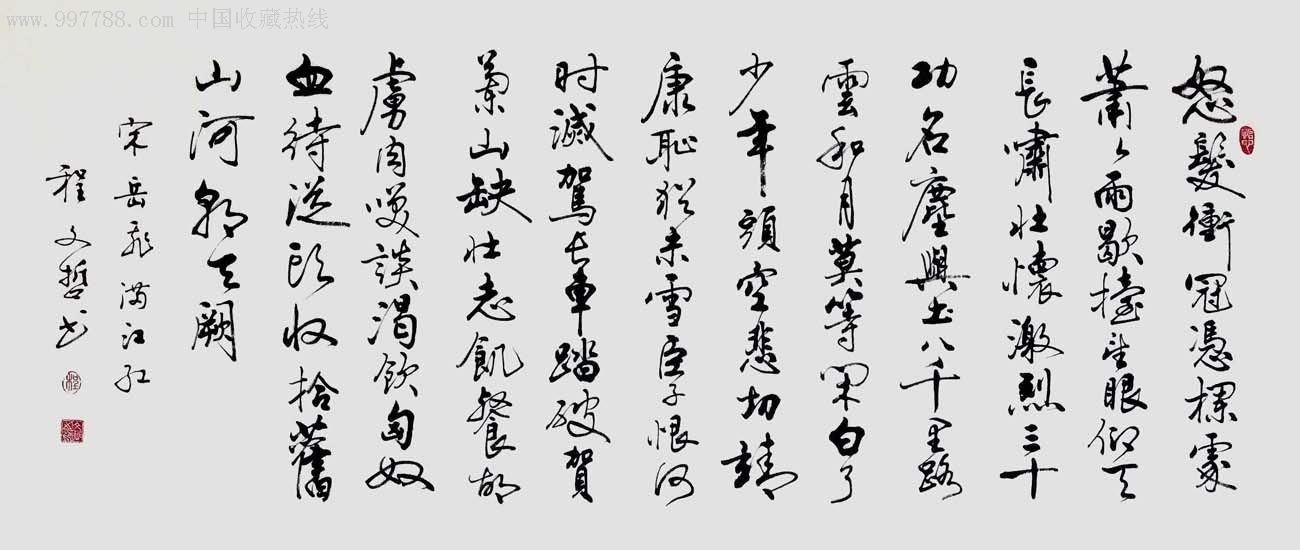 www.997788.com 中国收藏热线
怒髮衝冠憑欄處
蕭々雨歇擡望眼仰天
長嘯壯懷激烈三十
功名塵與土八千里路
雲和月莫等閑白了
少年頭空悲切靖
康恥猶未雪臣子恨何
时滅駕长車踏破賀
蘭山缺壮志飢餐胡
虜肉笑談渴飲匈奴
血待從头收拾舊
山河朝天闕
宋岳飛满江红
程文哲书